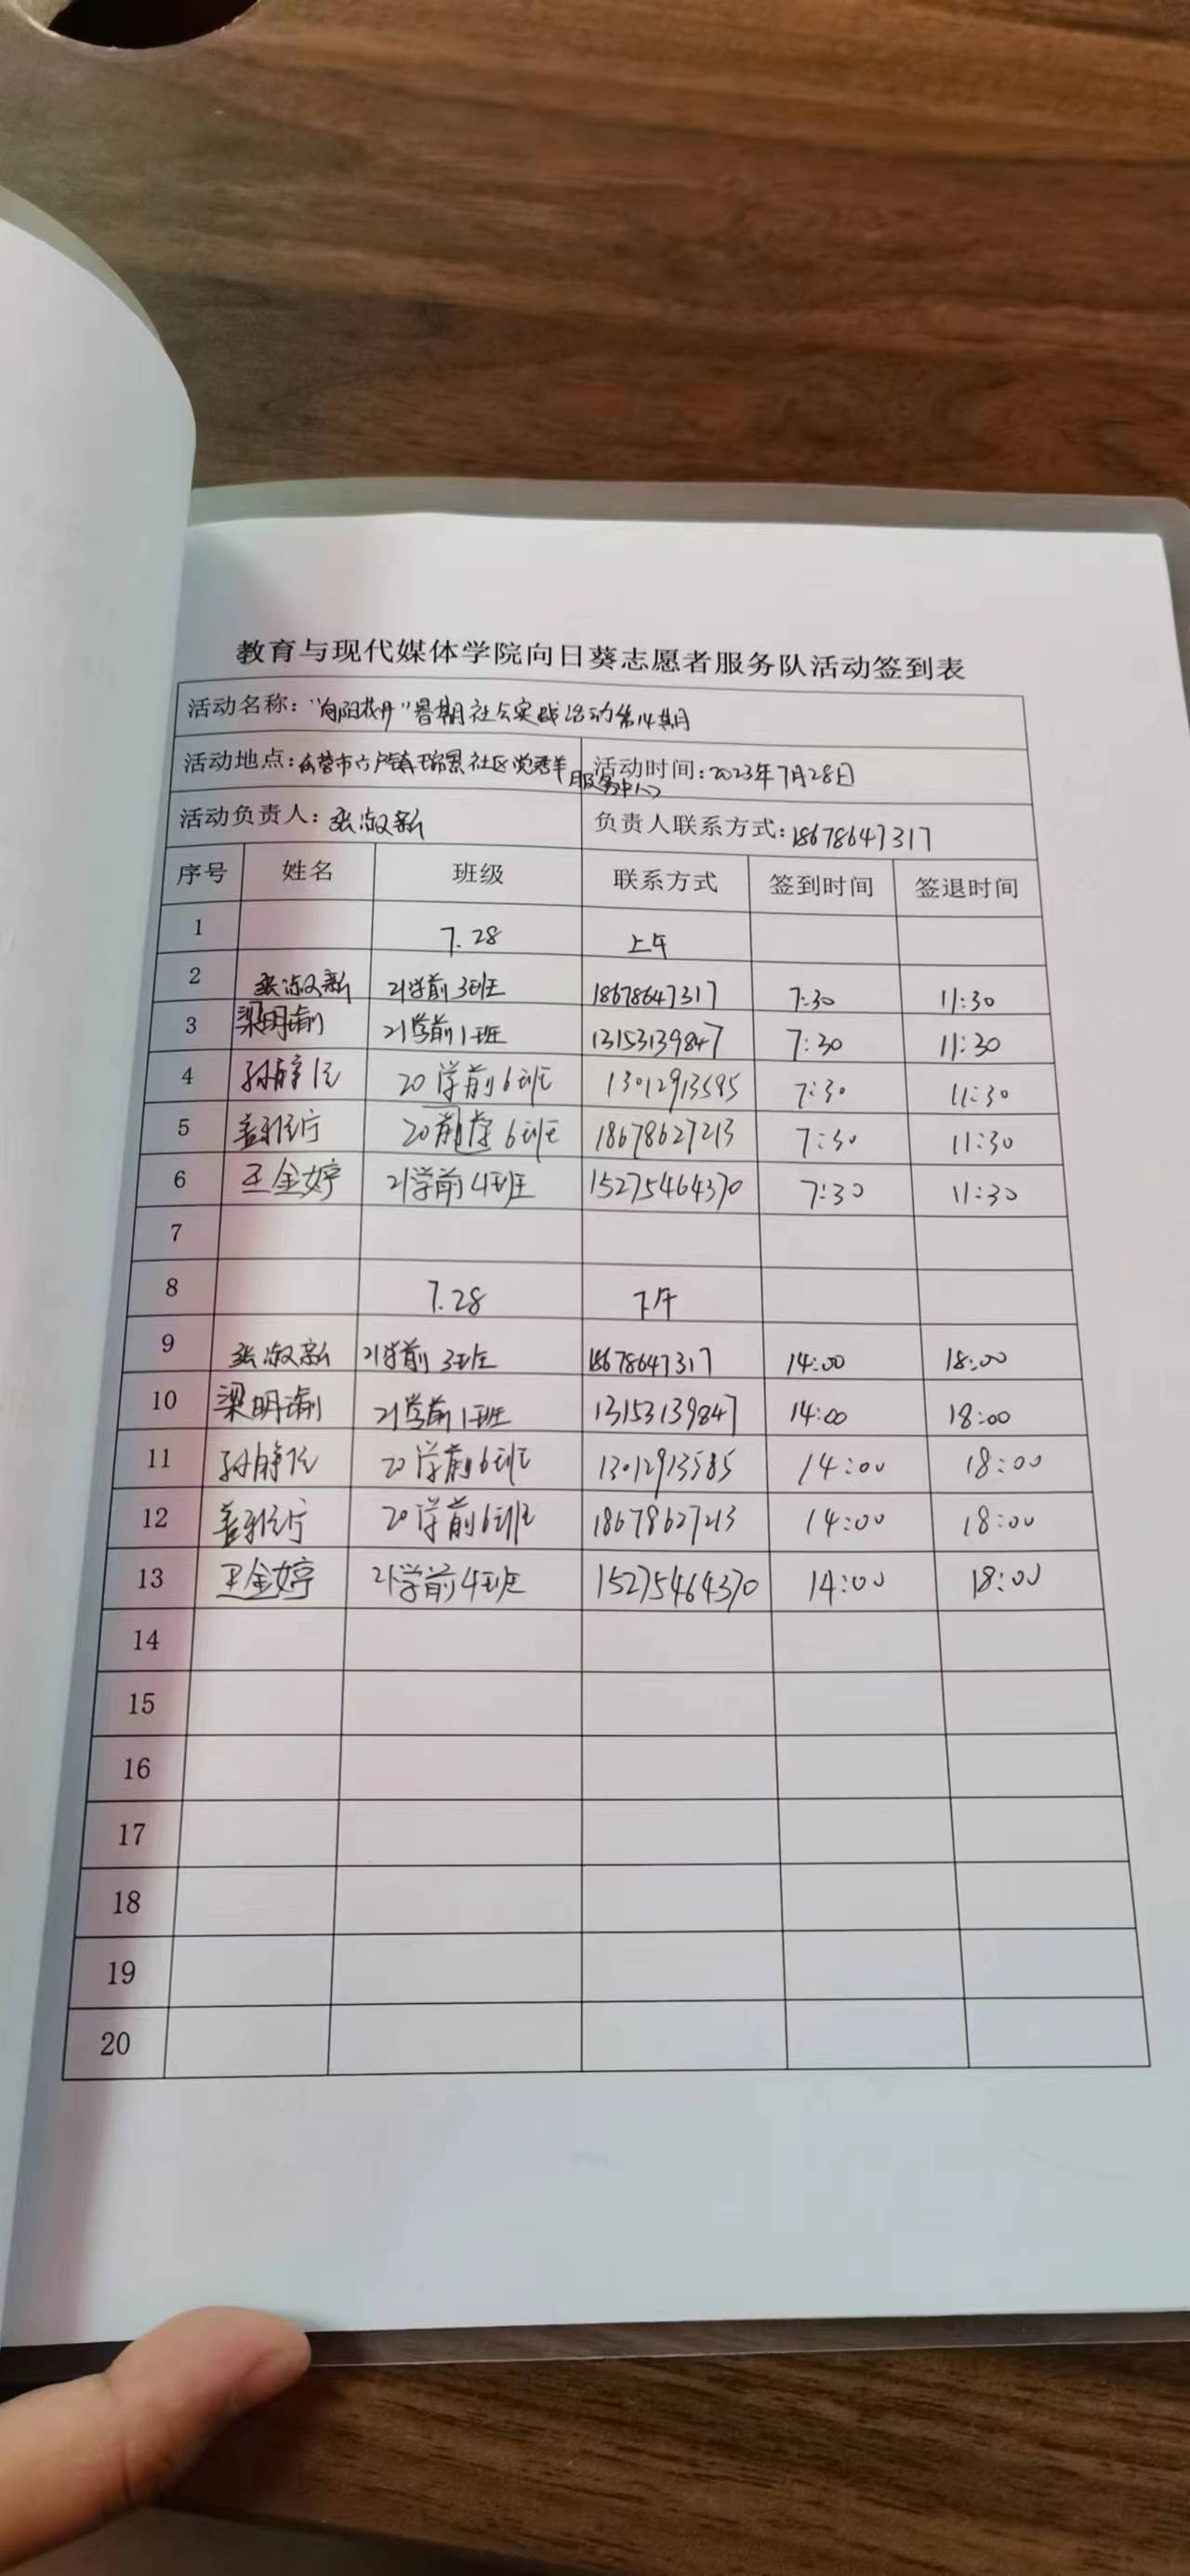 教育与现代媒体学院向日葵志愿者服务队活动签到表
活动名称：“向阳花开”暑期社会实践活动第14期
活动地点：东营市六户镇瑞景社区党群 服务中心 活动时间：2023年7月28日
活动负责人：张淑新 负责人联系方式：18678647317
序号 姓名 班级 联系方式 签到时间 签退时间
1 7.28 上午
2 张淑新 21学前3班 18678647317 7:30 11:30
3 梁明瑜 21学前1班 13153139847 7:30 11:30
4 孙静 20学前6班 7:30 11:30
5 20前学6班 18678627213 7:30 11:30
6 王金婷 21学前4班 15275464370 7:30 11:30
7
8 7.28 下午
9 张淑新 21学前3班 18678647317 14:00 18:00
10 梁明瑜 21学前1班 13153139847 14:00 18:00
11 孙静 20学前6班 14:00 18:00
12 20学前6班 18678627213 14:00 18:00
13 王金婷 21学前4班 15275464370 14:00 18:00
14
15
16
17
18
19
20